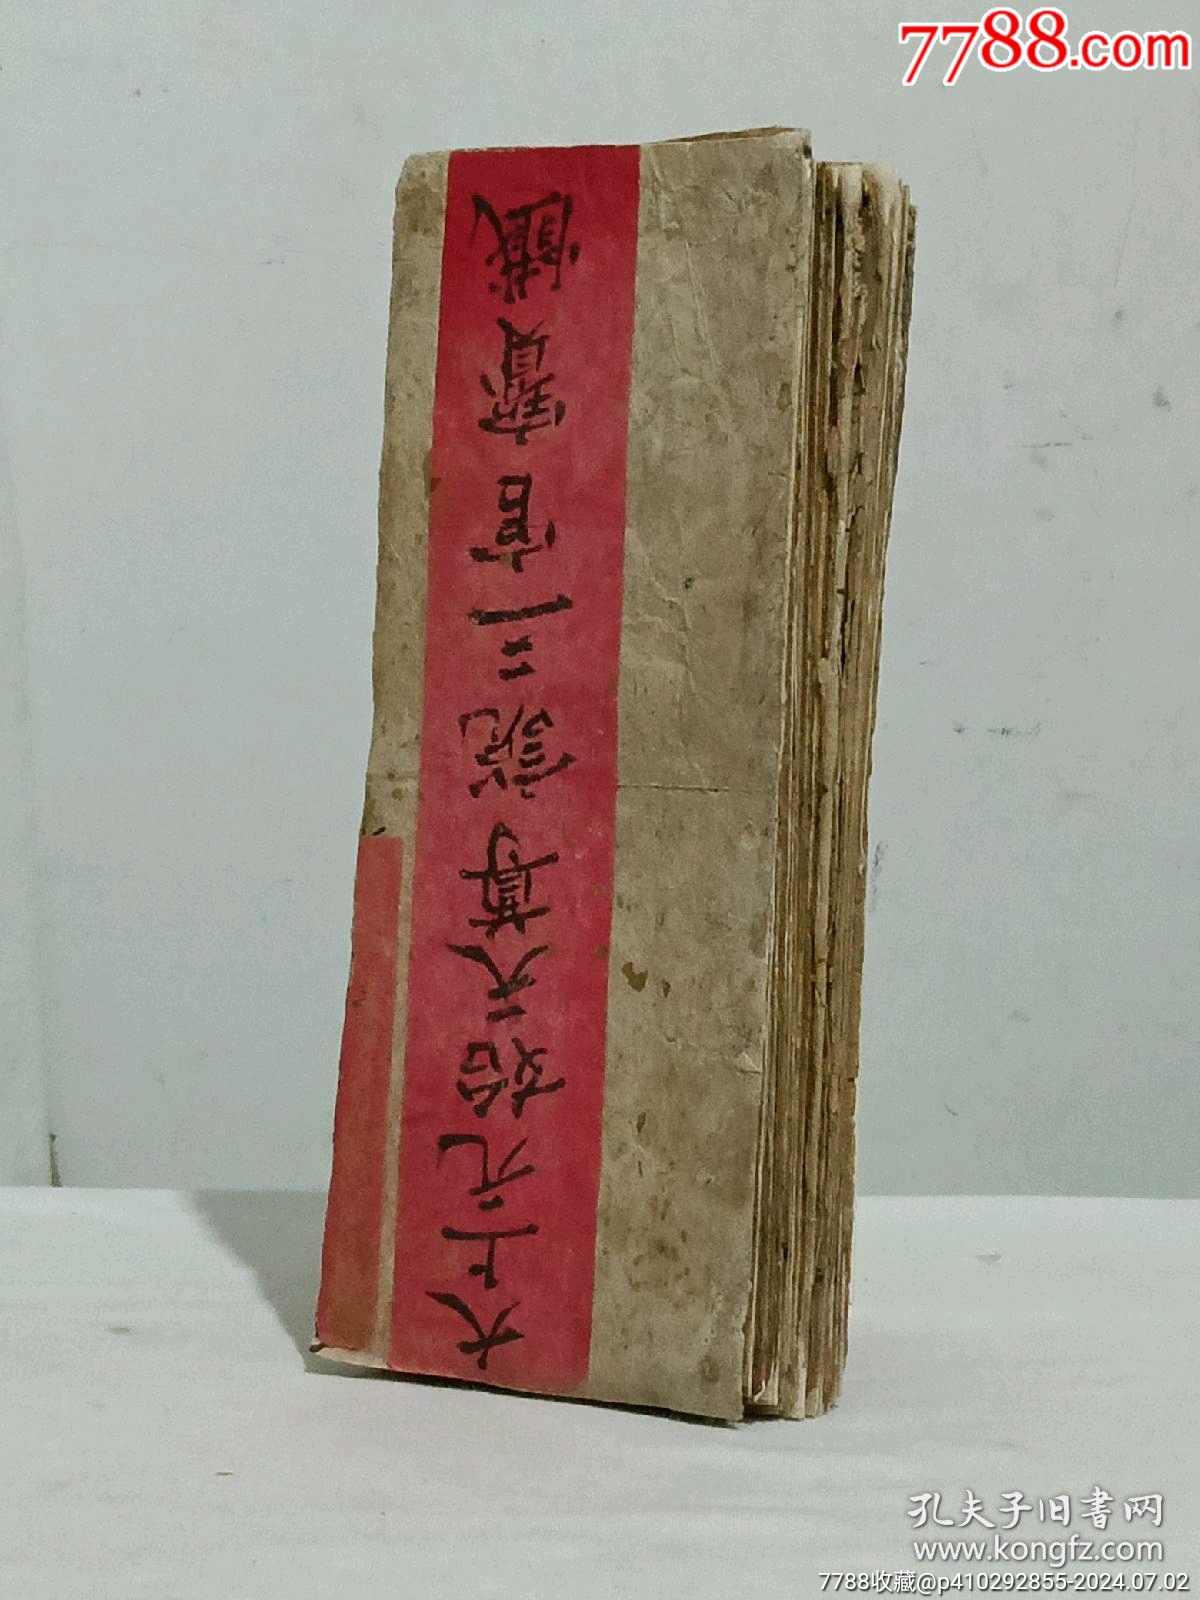 7788.com
大上元始天尊說三官寶懺
孔夫子旧书网
www.kongfz.com
7788收藏@p410292855-2024.07.02